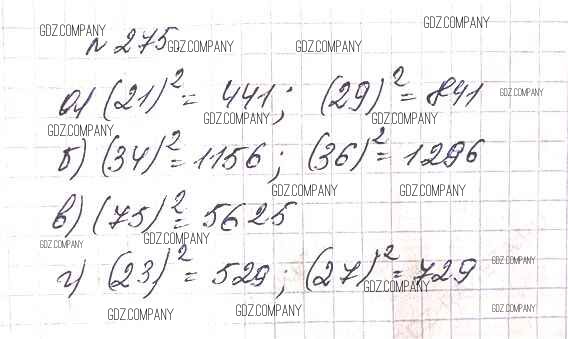 GDZ.COMPANY GDZ.COMPANY
№ 275 GDZ.COMPANY GDZ.COMPANY
а) (21)² = 441; (29)² = 841 GDZ.COMPANY
GDZ.COMPANY GDZ.COMPANY GDZ.COMPANY
б) (34)² = 1156; (36)² = 1296
GDZ.COMPANY GDZ.COMPANY
в) (75)² = 5625
GDZ.COMPANY GDZ.COMPANY GDZ.COMPANY
г) (23)² = 529; (27)² = 729
GDZ.COMPANY
GDZ.COMPANY GDZ.COMPANY GDZ.COMPANY